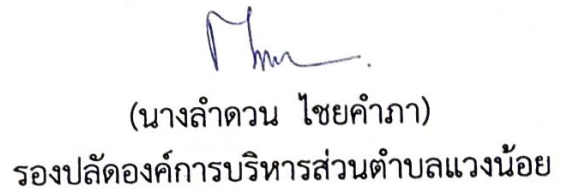 (นางลำดวน ไชยคำภา)
รองปลัดองค์การบริหารส่วนตำบลแวงน้อย